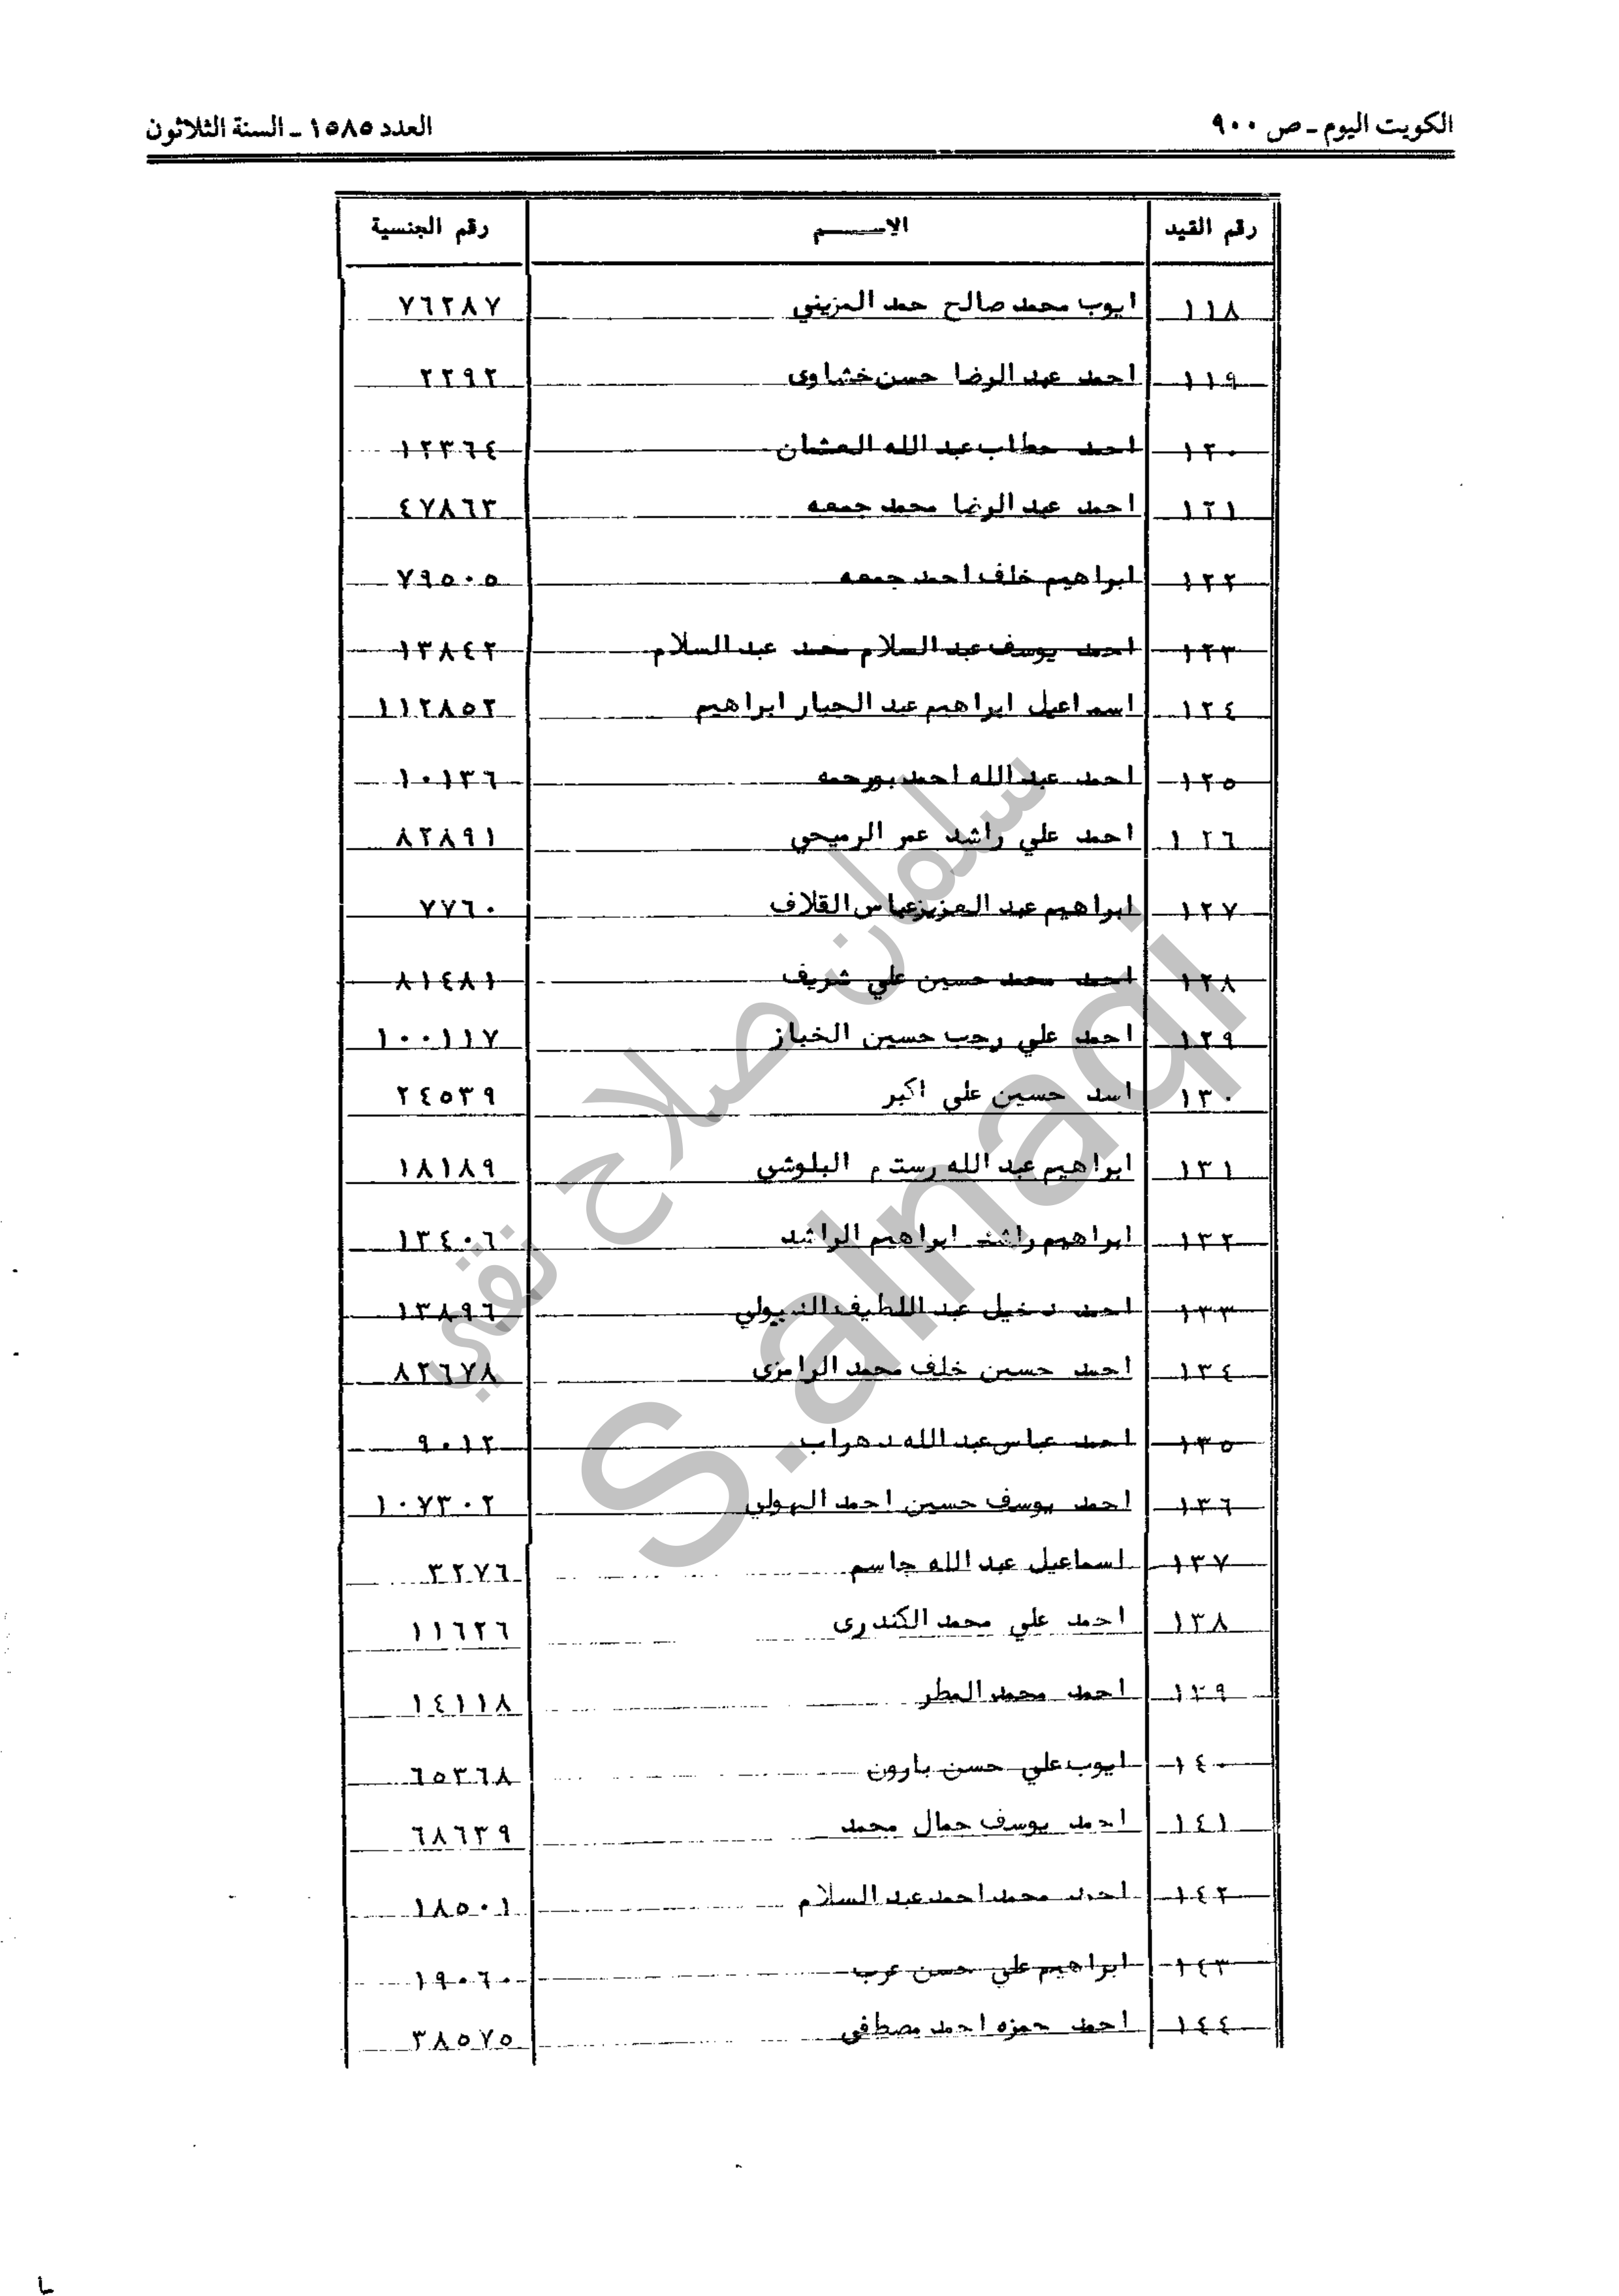 الكويت اليوم ـ ص ٩٠٠
العدد ١٥٨٥ ـ السنة الثلاثون
رقم القيد الاســــم رقم الجنسية
١١٨ ايوب محمد صالح حمد المزيني ٧٦٢٨٧
١١٩ احمد عبد الرضا حسن خشاوى ٢٢٩٢
١٢٠ احمد حطاب عبد الله العشان ١٢٣٦٤
١٢١ احمد عبد الرضا محمد جمعه ٤٧٨٦٣
١٢٢ ابراهيم خلف احمد جمعه ٧٩٥٠٥
١٢٣ احمد يوسف عبد السلام محمد عبد السلام ١٣٨٤٢
١٢٤ اسماعيل ابراهيم عبد الجبار ابراهيم ١١٢٨٥٢
١٢٥ احمد عبد الله احمد بورحمه ١٠١٣٦
١٢٦ احمد علي راشد عمر الرميحي ٨٢٨٩١
١٢٧ ابراهيم عبد العزيز عباس القلاف ٧٧٦٠
١٢٨ احمد محمد حسين علي شريف ٨١٤٨١
١٢٩ احمد علي رجب حسين الخباز ١٠٠١١٧
١٣٠ اسد حسين علي اكبر ٢٤٥٣٩
١٣١ ابراهيم عبد الله رستم البلوشي ١٨١٨٩
١٣٢ ابراهيم راشد ابراهيم الراشد ١٣٤٠٦
١٣٣ احمد دخيل عبد اللطيف الدبولي ١٣٨٩٦
١٣٤ احمد حسين خلف محمد الرامزى ٨٢٦٧٨
١٣٥ احمد عباس عبد الله دهراب ٩٠١٢
١٣٦ احمد يوسف حسين احمد الهولي ١٠٧٣٠٢
١٣٧ اسماعيل عبد الله جاسم ٣٢٧٦
١٣٨ احمد علي محمد الكندرى ١١٦٢٦
١٣٩ احمد محمد المطر ١٤١١٨
١٤٠ ايوب علي حسن بارون ٦٥٣٦٨
١٤١ احمد يوسف جمال محمد ٦٨٦٣٩
١٤٢ احمد محمد احمد عبد السلام ١٨٥٠١
١٤٣ ابراهيم علي حسن عرب ١٩٠٦٠
١٤٤ احمد حمزه احمد مصطفى ٣٨٥٧٥
سلمان صلاح نقي
S.alnaqi